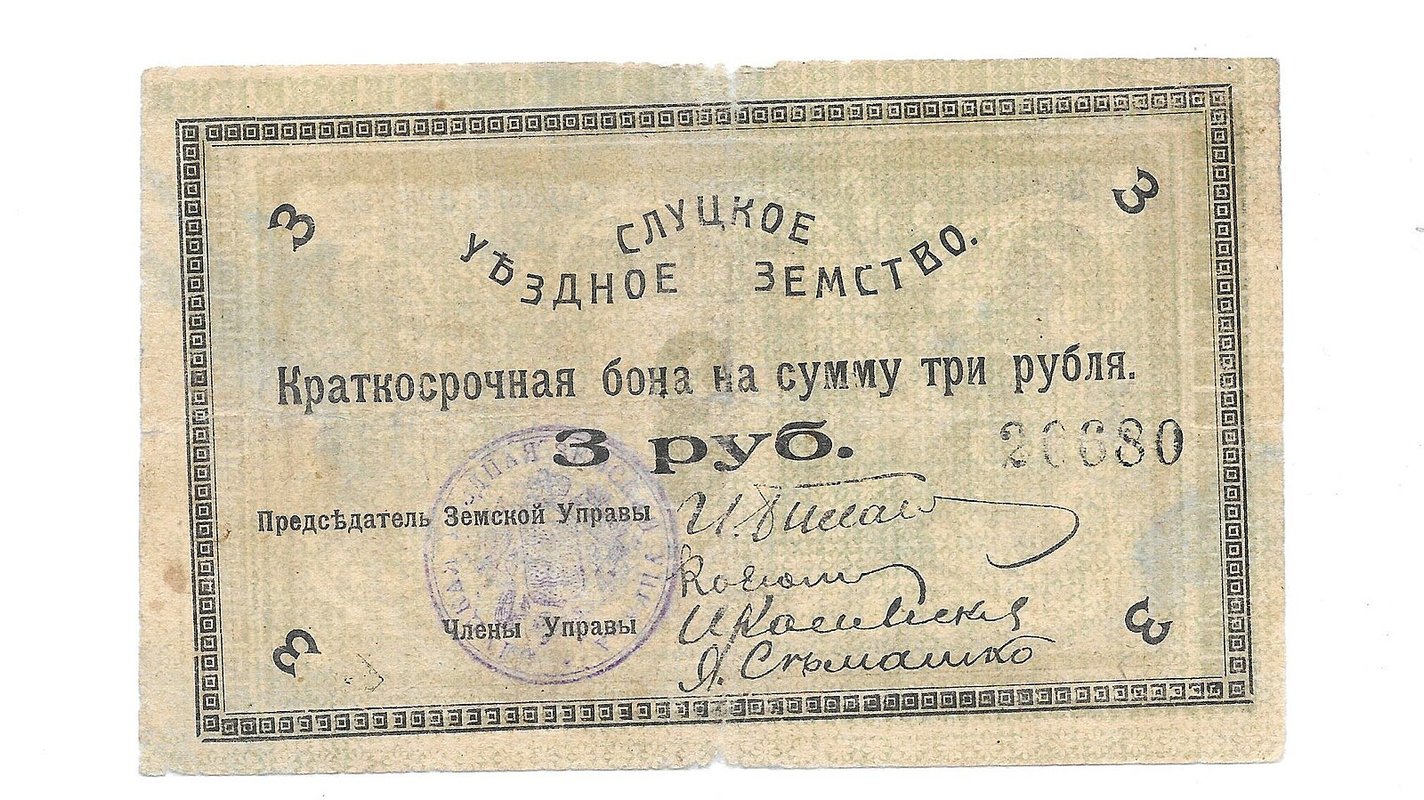 3 3
СЛУЦКОЕ
УѢЗДНОЕ ЗЕМСТВО.
Краткосрочная бона на сумму три рубля.
3 руб.
26680
Предсѣдатель Земской Управы
Члены Управы
Я. Сѣмашко
3 3